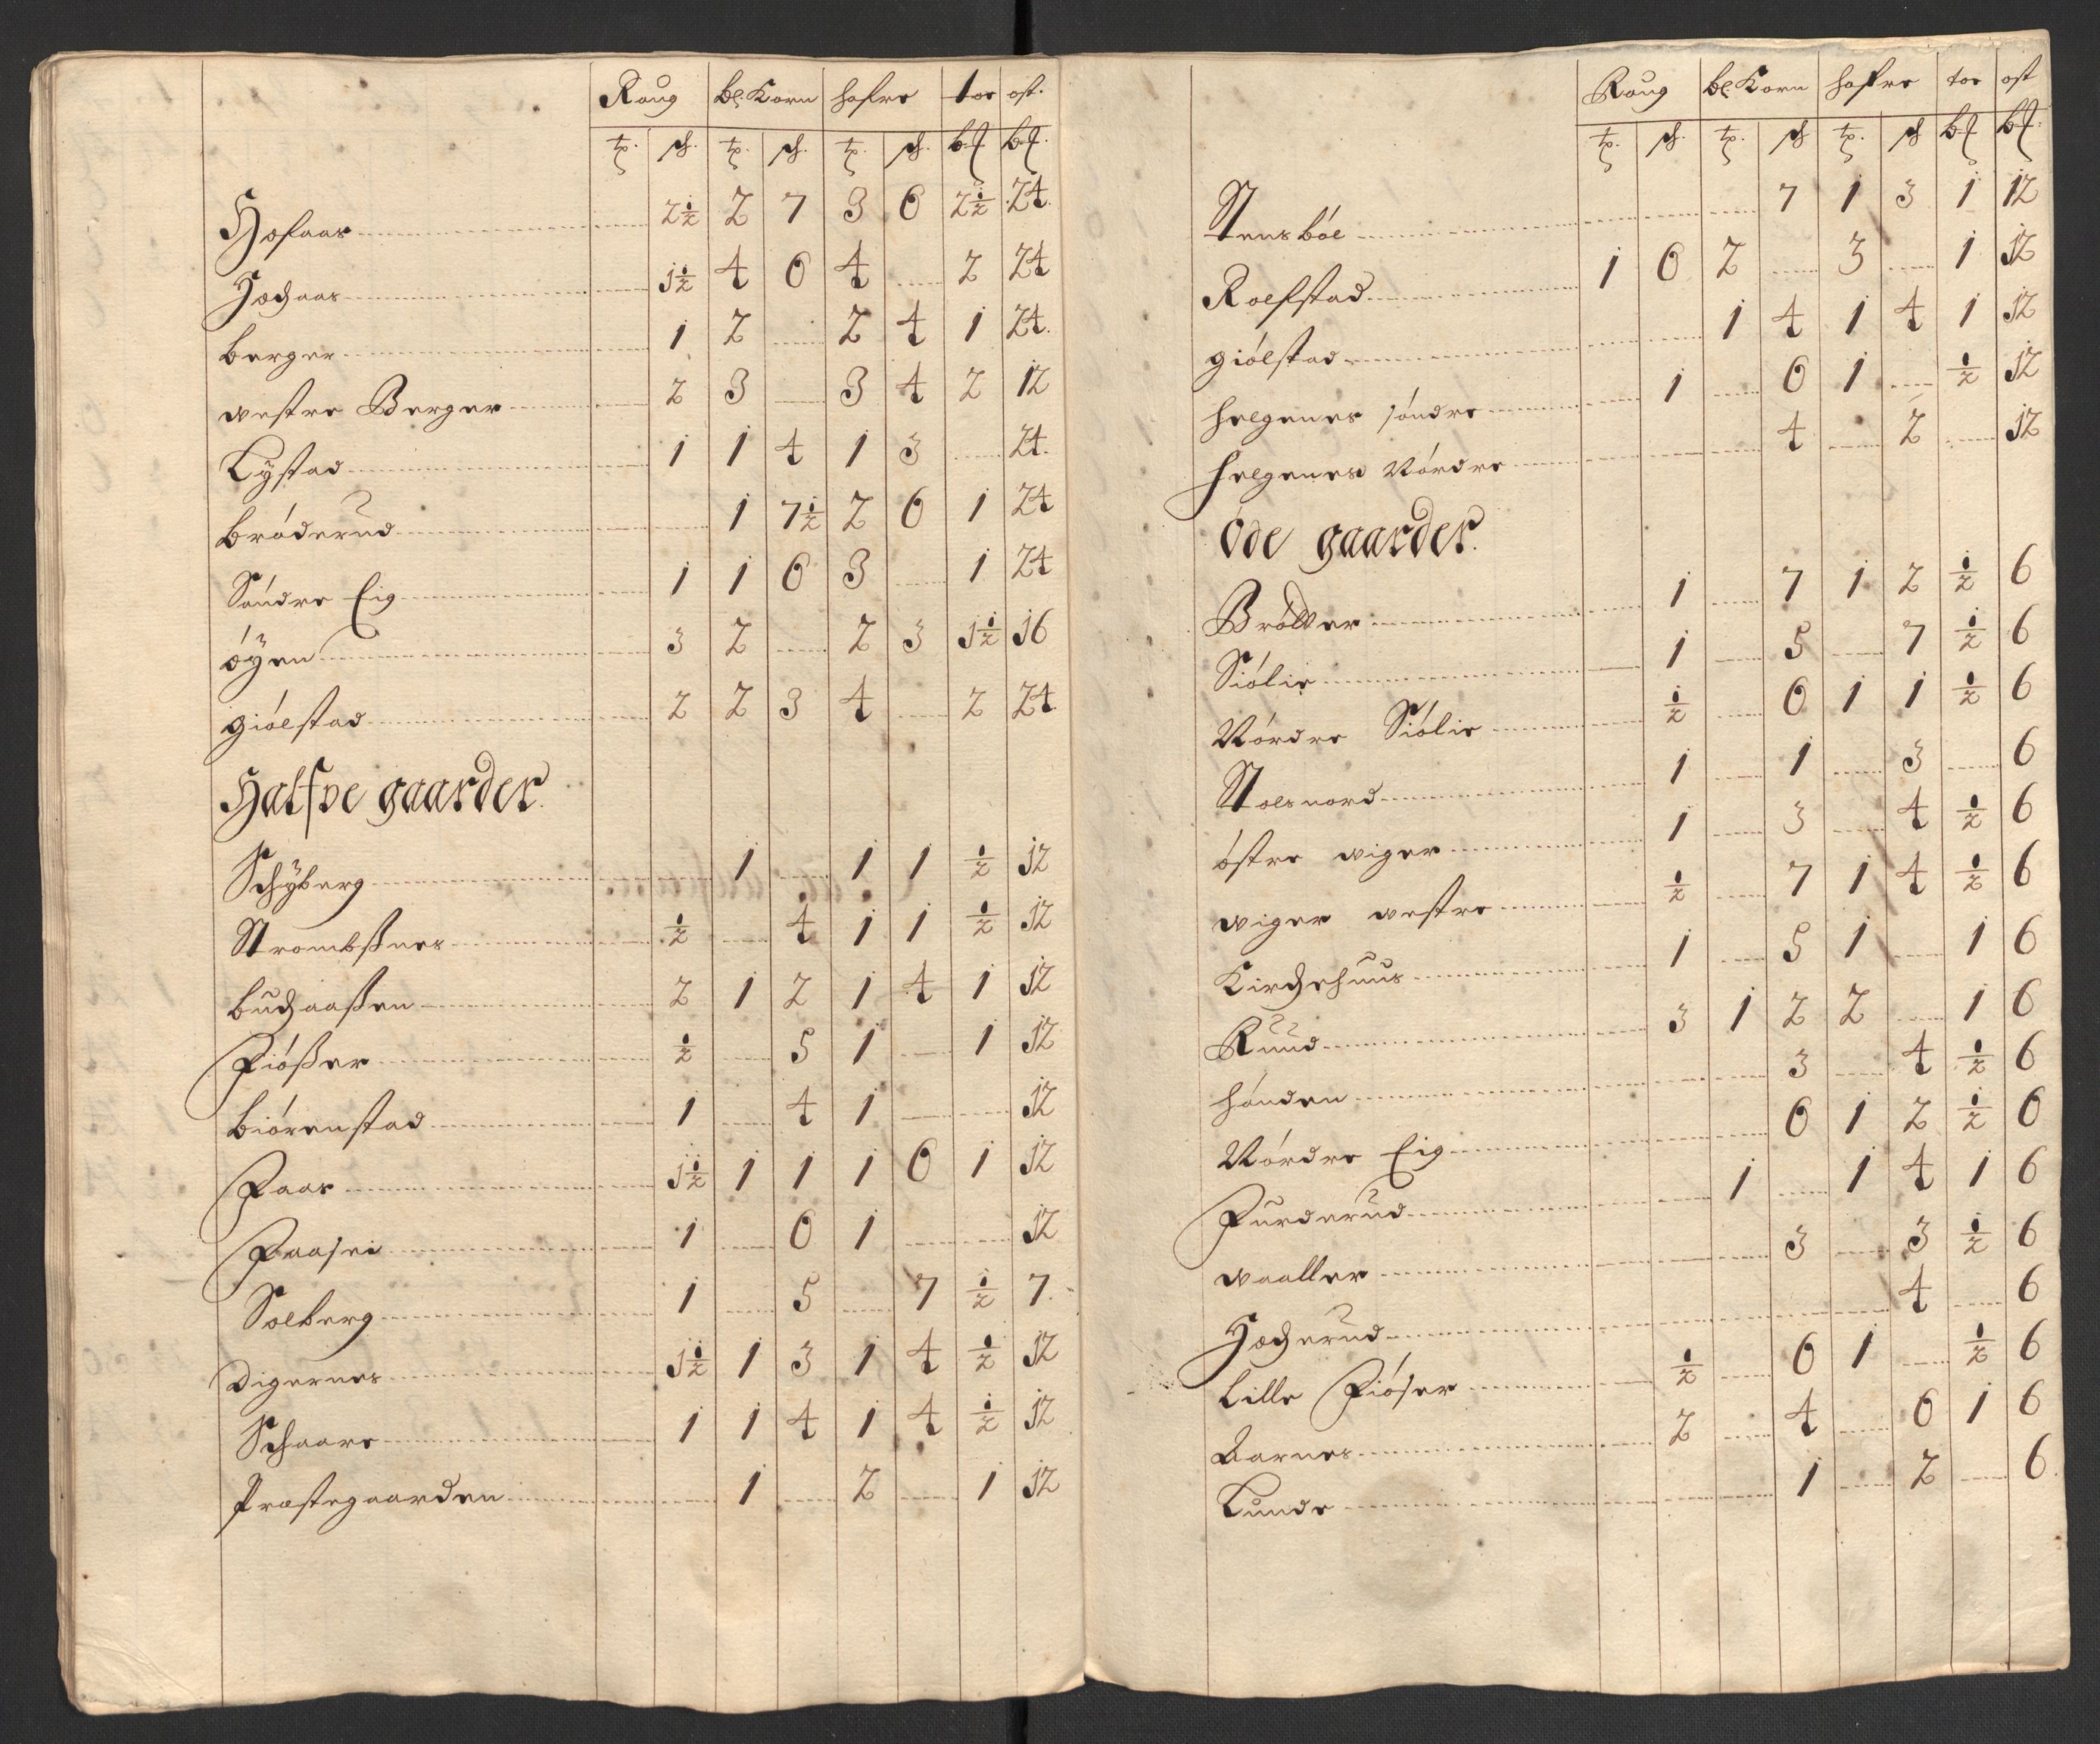 Roug bl Korn hafre tor ost.
tp. sh. tp. sh. tp. sh. bl bl.
Hofaas 2½ 2 7 3 6 2½ 24.
Hochaas 1½ 4 6 4 2 24
Berger 1 2 2 4 1 24.
westre Berger 2 3 3 4 2 12
Lystad 1 1 4 1 3 24.
Bróderud 1 7½ 2 6 1 24
Sóndre Eig 1 1 6 3 1 24
óyen 3 2 2 3 1½ 16
giólstad 2 2 3 4 2 24.
Halfve gaarder.
Schÿberg 1 1 1 ½ 12
Strombssnes ½ 4 1 1 ½ 12
Buchaassen 2 1 2 1 4 1 12
Fiósser ½ 5 1 1 12
Biórenstad 1 4 1 12
Faas 1½ 1 1 1 6 1 12
Faasei 1 6 1 12
Solberg 1 5 7 ½ 7.
Digernes 1½ 1 3 1 4 ½ 12
Schaare 1 1 4 1 4 ½ 12
Præstegaarden 1 2 1 12
Roug bl Korn hafre tor ost
tp. sh. tp. sh tp. sh bl bl.
Stensból 7 1 3 1 12
Rolfstad 1 6 2 3 1 12
giólstad 1 4 1 4 1 12
helgenes sóndre 1 6 1 ½ 12
helgenes Nórdre 4 2 12
óde gaarder.
Brótter 1 7 1 2 ½ 6
Siólie 1 5 7 ½ 6
Nórdre Siólie ½ 6 1 1 ½ 6
Stolsnord 1 1 3 6
óstre wiger 1 3 4 ½ 6
wiger westre ½ 7 1 4 ½ 6
Kirchehuus 1 5 1 1 6
Ruud 3 1 2 2 1 6
hónden 3 4 ½ 6
Nórdre Eig 6 1 2 ½ 6
Furderud 1 1 4 1 6
waaller 3 3 ½ 6
Hocherud 4 6
Lille Fióser ½ 6 1 ½ 6
Aarnes 2 4 6 1 6
Lunde 1 2 6.